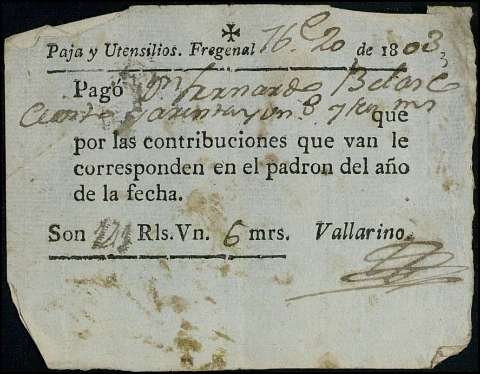 Paja y Utensilios. Fregenal 20 de 1803
Pagó Dn Fernando
Ciento y
que
por las contribuciones que van le
corresponden en el padron del año
de la fecha.
Son Rls.Vn. 6 mrs. Vallarino.